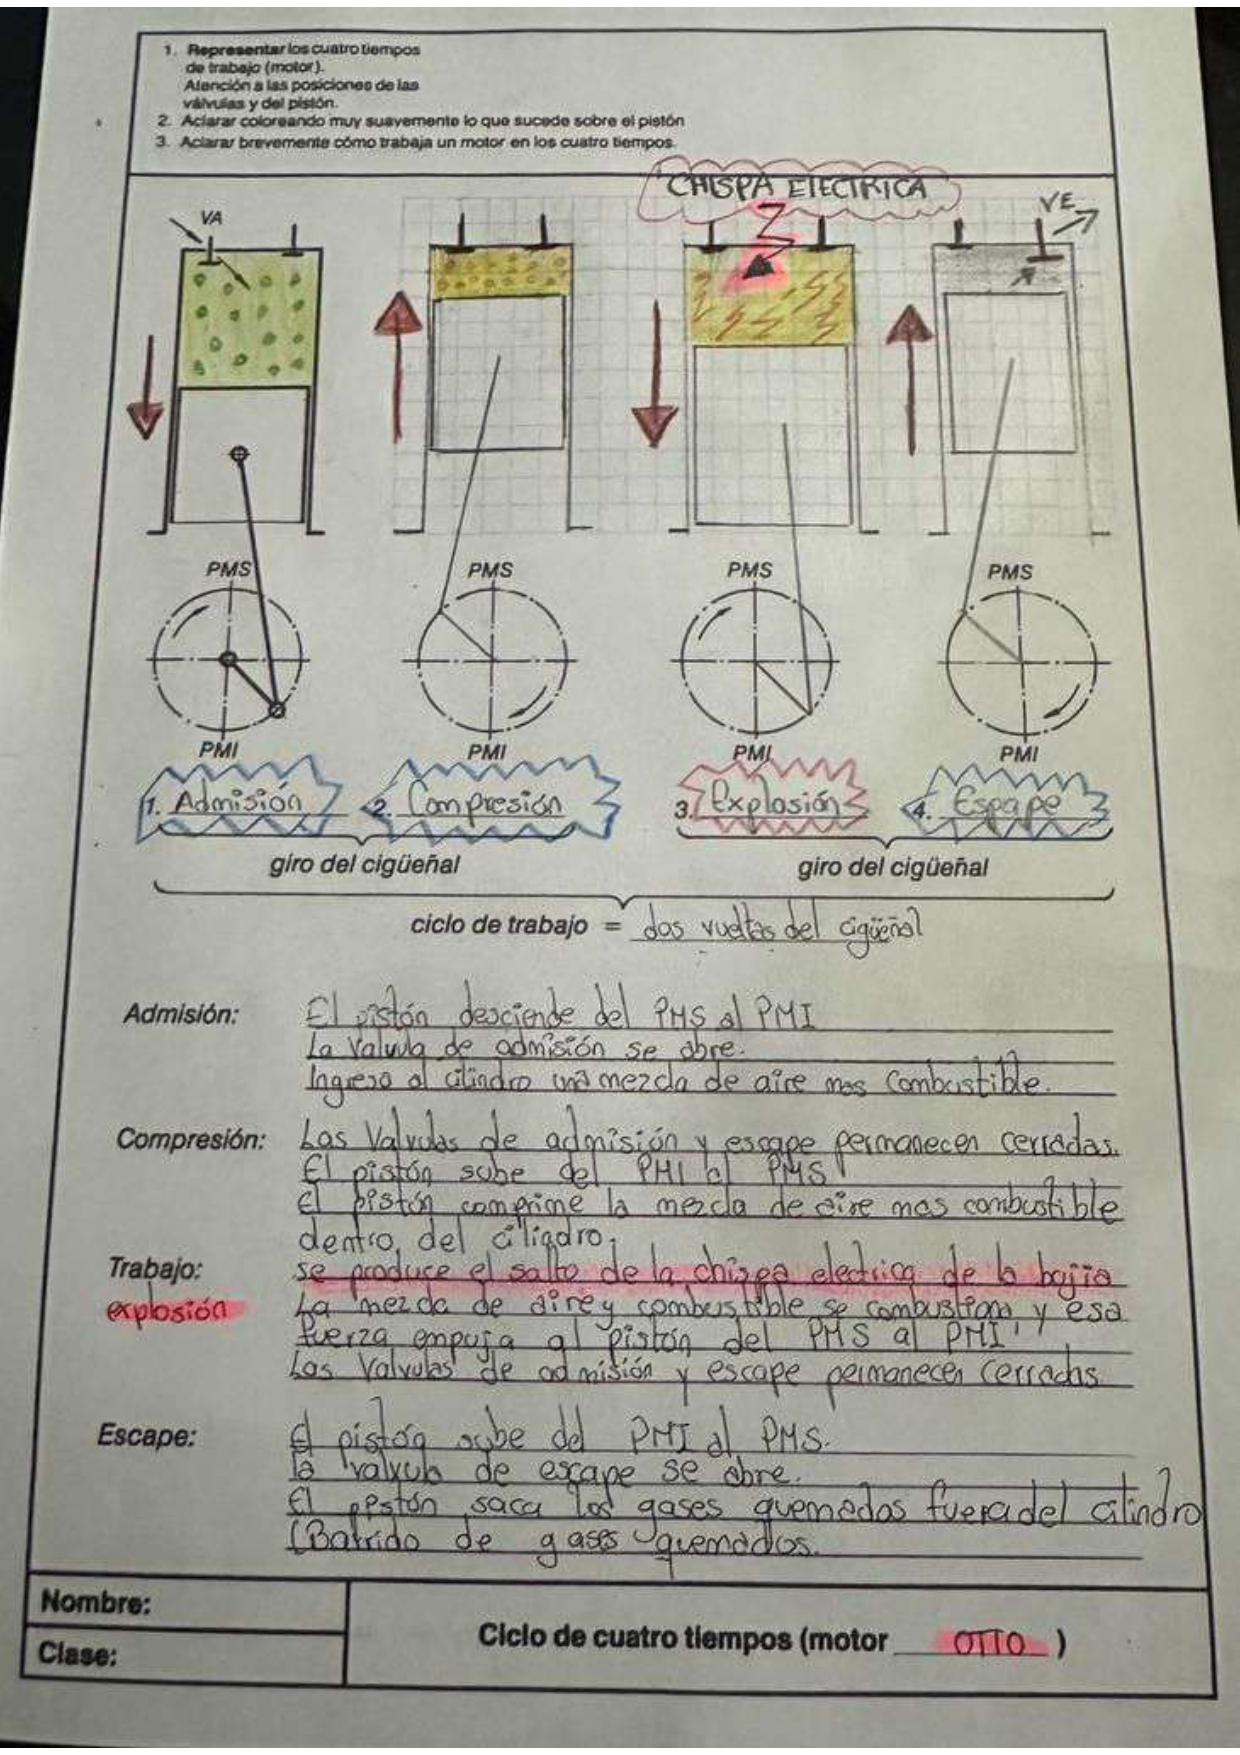 1. Representar los cuatro tiempos
de trabajo (motor).
Atención a las posiciones de las
válvulas y del pistón.
2. Aclarar coloreando muy suavemente lo que sucede sobre el pistón
3. Aclarar brevemente cómo trabaja un motor en los cuatro tiempos.
CHISPA ELECTRICA
VA
VE
PMS PMS PMS PMS
PMI PMI PMI PMI
1. Admisión 2. Compresión 3. Explosión 4. Espape
giro del cigüeñal giro del cigüeñal
ciclo de trabajo = dos vueltas del cigüeñal
Admisión: El pistón desciende del PMS al PMI
La Valvula de admisión se abre.
Ingresa al cilindro una mezcla de aire mas Combustible.
Compresión: Las Valvulas de admisión y escape permanecen cerradas.
El pistón sube del PMI al PMS
El pistón comprime la mezcla de aire mas combustible
dentro del cilindro.
Trabajo: se produce el salto de la chispa electrica de la bajia
explosión La mezcla de aire y combustible se combustiona y esa
fuerza empuja al pistón del PMS al PMI
Las Valvulas de admisión y escape permanecen Cerradas
Escape: El pistón sube del PMI al PMS.
la valvula de escape se abre.
El pistón saca los gases quemados fuera del cilindro
(Barrido de gases quemados.
Nombre:
Clase:
Ciclo de cuatro tiempos (motor OTTO )